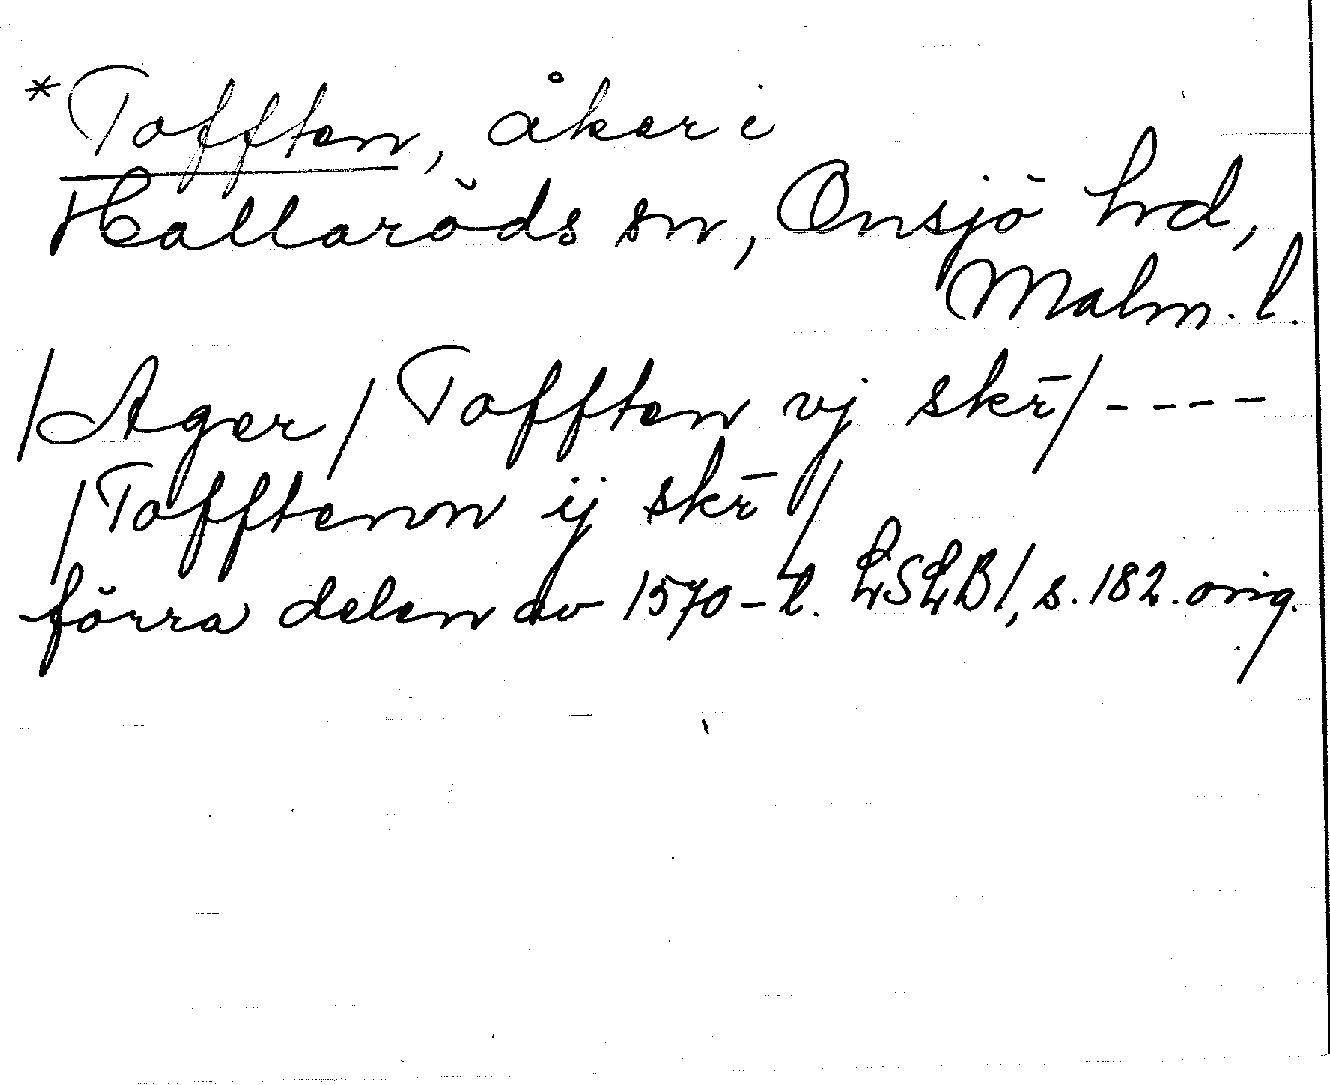 *Tofften, åker i
Hallaröds sn, Onsjö hd,
Malm. l.
/Ager/ Tofften vj skr̄/----
/Tofftenn ij skr̄ /
förra delen av 1570-t. LSLB1, s. 182. orig.